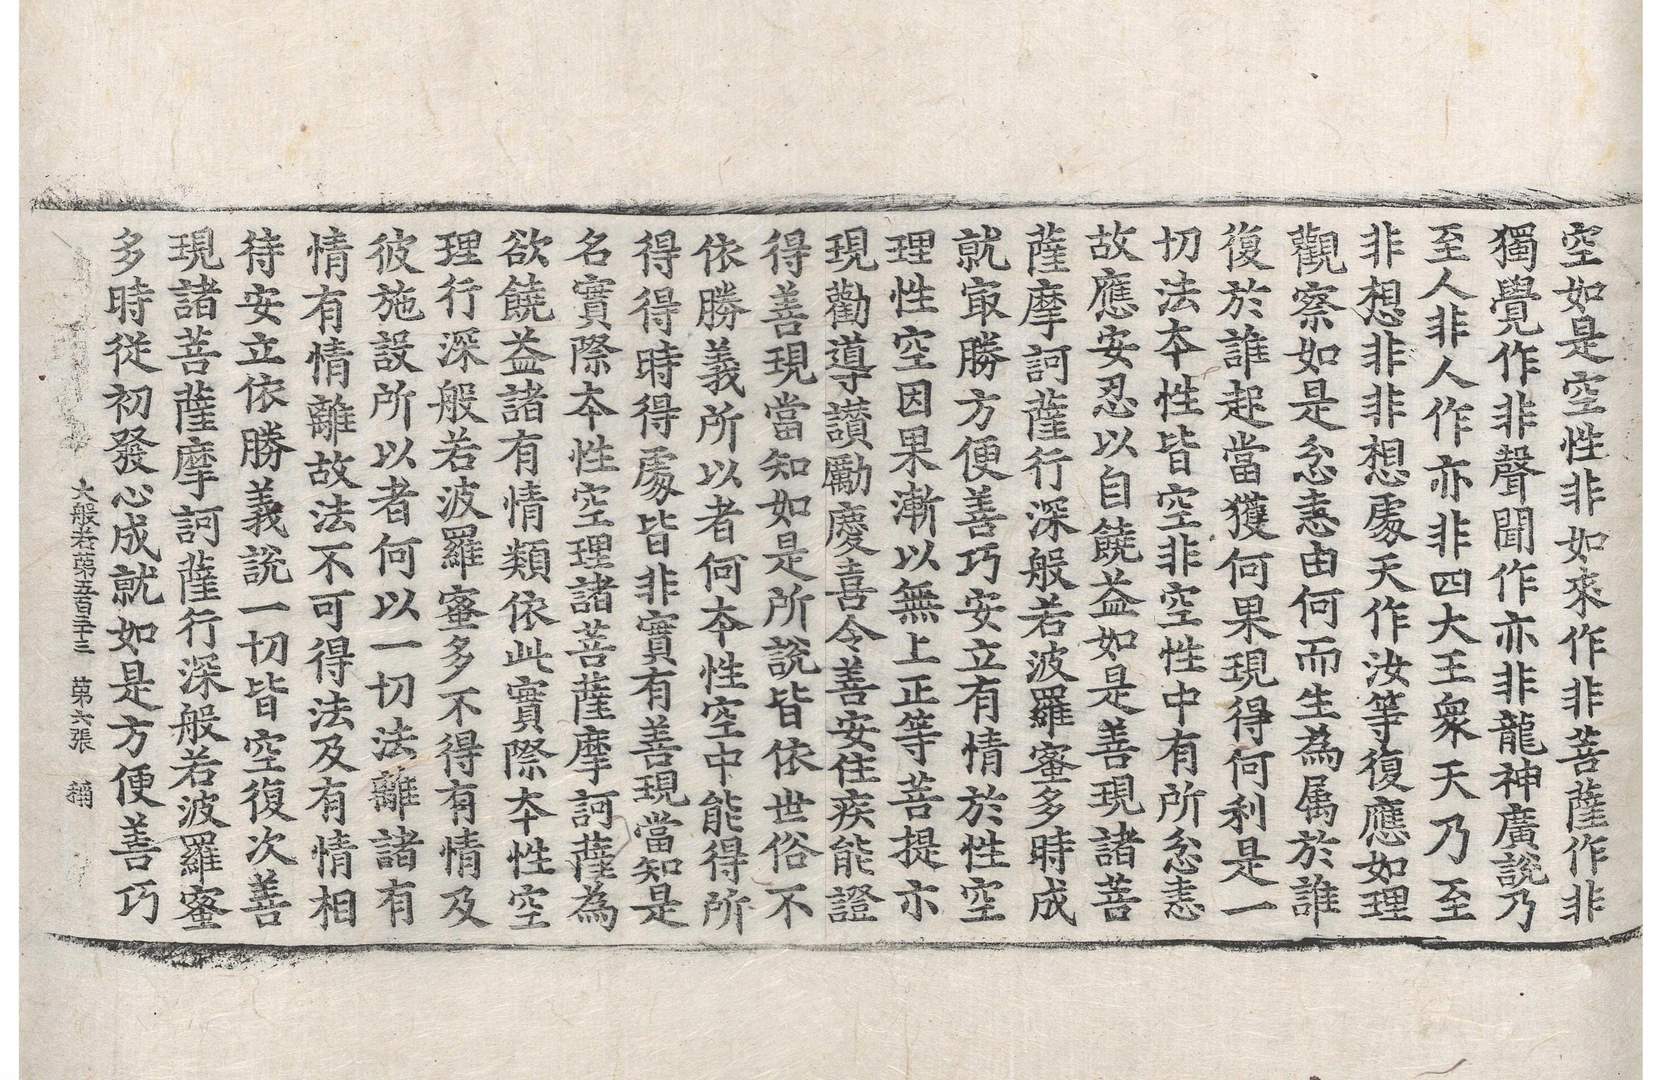 空如是空性非如來作非菩薩作非
獨覺作非聲聞作亦非龍神廣說乃
至人非人作亦非四大王衆天乃至
非想非非想處天作汝等復應如理
觀察如是忿恚由何而生為属於誰
復於誰起當獲何果現得何利是一
切法夲性皆空非空性中有所忿恚
故應安忍以自饒益如是善現諸菩
薩摩訶薩行深般若波羅蜜多時成
就㝡勝方便善巧安立有情於性空
理性空因果漸以無上正等菩提示
現勸導讃勵慶喜令善安住疾能證
得善現當知如是所說皆依世俗不
依勝義所以者何夲性空中能得所
得得時得處皆非實有善現當知是
名實際夲性空理諸菩薩摩訶薩為
欲饒益諸有情類依此實際夲性空
理行深般若波羅蜜多不得有情及
彼施設所以者何以一切法離諸有
情有情離故法不可得法及有情相
待安立依勝義說一切皆空復次善
現諸菩薩摩訶薩行深般若波羅蜜
多時從初發心成就如是方便善巧
大般若第五百三十三 第六張 稱